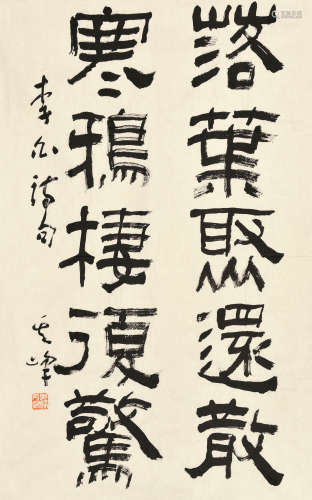 落葉聚還散
寒鴉棲復驚
李白詩句
其峰